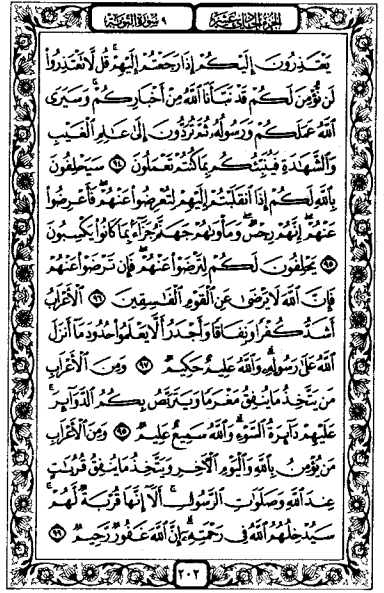 الجزء الحادي عشر
٩ سورة التوبة
يَعْتَذِرُونَ إِلَيْكُمْ إِذَا رَجَعْتُمْ إِلَيْهِمْ قُل لَّا تَعْتَذِرُوا۟
لَن نُّؤْمِنَ لَكُمْ قَدْ نَبَّأَنَا ٱللَّهُ مِنْ أَخْبَارِكُمْ ۚ وَسَيَرَى
ٱللَّهُ عَمَلَكُمْ وَرَسُولُهُۥ ثُمَّ تُرَدُّونَ إِلَىٰ عَـٰلِمِ ٱلْغَيْبِ
وَٱلشَّهَـٰدَةِ فَيُنَبِّئُكُم بِمَا كُنتُمْ تَعْمَلُونَ ٩٤ سَيَحْلِفُونَ
بِٱللَّهِ لَكُمْ إِذَا ٱنقَلَبْتُمْ إِلَيْهِمْ لِتُعْرِضُوا۟ عَنْهُمْ ۖ فَأَعْرِضُوا۟
عَنْهُمْ ۖ إِنَّهُمْ رِجْسٌ ۖ وَمَأْوَىٰهُمْ جَهَنَّمُ جَزَآءًۢ بِمَا كَانُوا۟ يَكْسِبُونَ
٩٥ يَحْلِفُونَ لَكُمْ لِتَرْضَوْا۟ عَنْهُمْ ۖ فَإِن تَرْضَوْا۟ عَنْهُمْ
فَإِنَّ ٱللَّهَ لَا يَرْضَىٰ عَنِ ٱلْقَوْمِ ٱلْفَـٰسِقِينَ ٩٦ ٱلْأَعْرَابُ
أَشَدُّ كُفْرًا وَنِفَاقًا وَأَجْدَرُ أَلَّا يَعْلَمُوا۟ حُدُودَ مَآ أَنزَلَ
ٱللَّهُ عَلَىٰ رَسُولِهِۦ ۗ وَٱللَّهُ عَلِيمٌ حَكِيمٌ ٩٧ وَمِنَ ٱلْأَعْرَابِ
مَن يَتَّخِذُ مَا يُنفِقُ مَغْرَمًا وَيَتَرَبَّصُ بِكُمُ ٱلدَّوَآئِرَ ۚ
عَلَيْهِمْ دَآئِرَةُ ٱلسَّوْءِ ۗ وَٱللَّهُ سَمِيعٌ عَلِيمٌ ٩٨ وَمِنَ ٱلْأَعْرَابِ
مَن يُؤْمِنُ بِٱللَّهِ وَٱلْيَوْمِ ٱلْـَٔاخِرِ وَيَتَّخِذُ مَا يُنفِقُ قُرُبَـٰتٍ
عِندَ ٱللَّهِ وَصَلَوَٰتِ ٱلرَّسُولِ ۚ أَلَآ إِنَّهَا قُرْبَةٌ لَّهُمْ ۚ
سَيُدْخِلُهُمُ ٱللَّهُ فِى رَحْمَتِهِۦٓ ۗ إِنَّ ٱللَّهَ غَفُورٌ رَّحِيمٌ ٩٩
٢٠٢